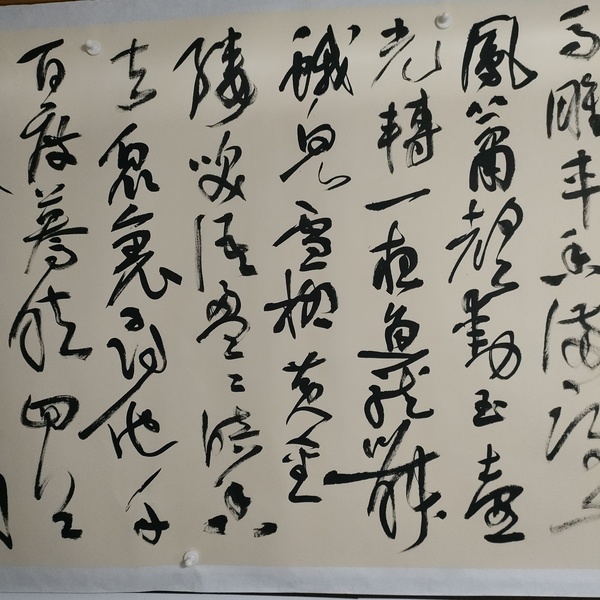 馬雕車香滿路
鳳簫聲動玉壺
光轉一夜魚龍舞
蛾兒雪柳黃金
縷笑語盈盈暗香
去眾裏尋他千
百度驀然回首